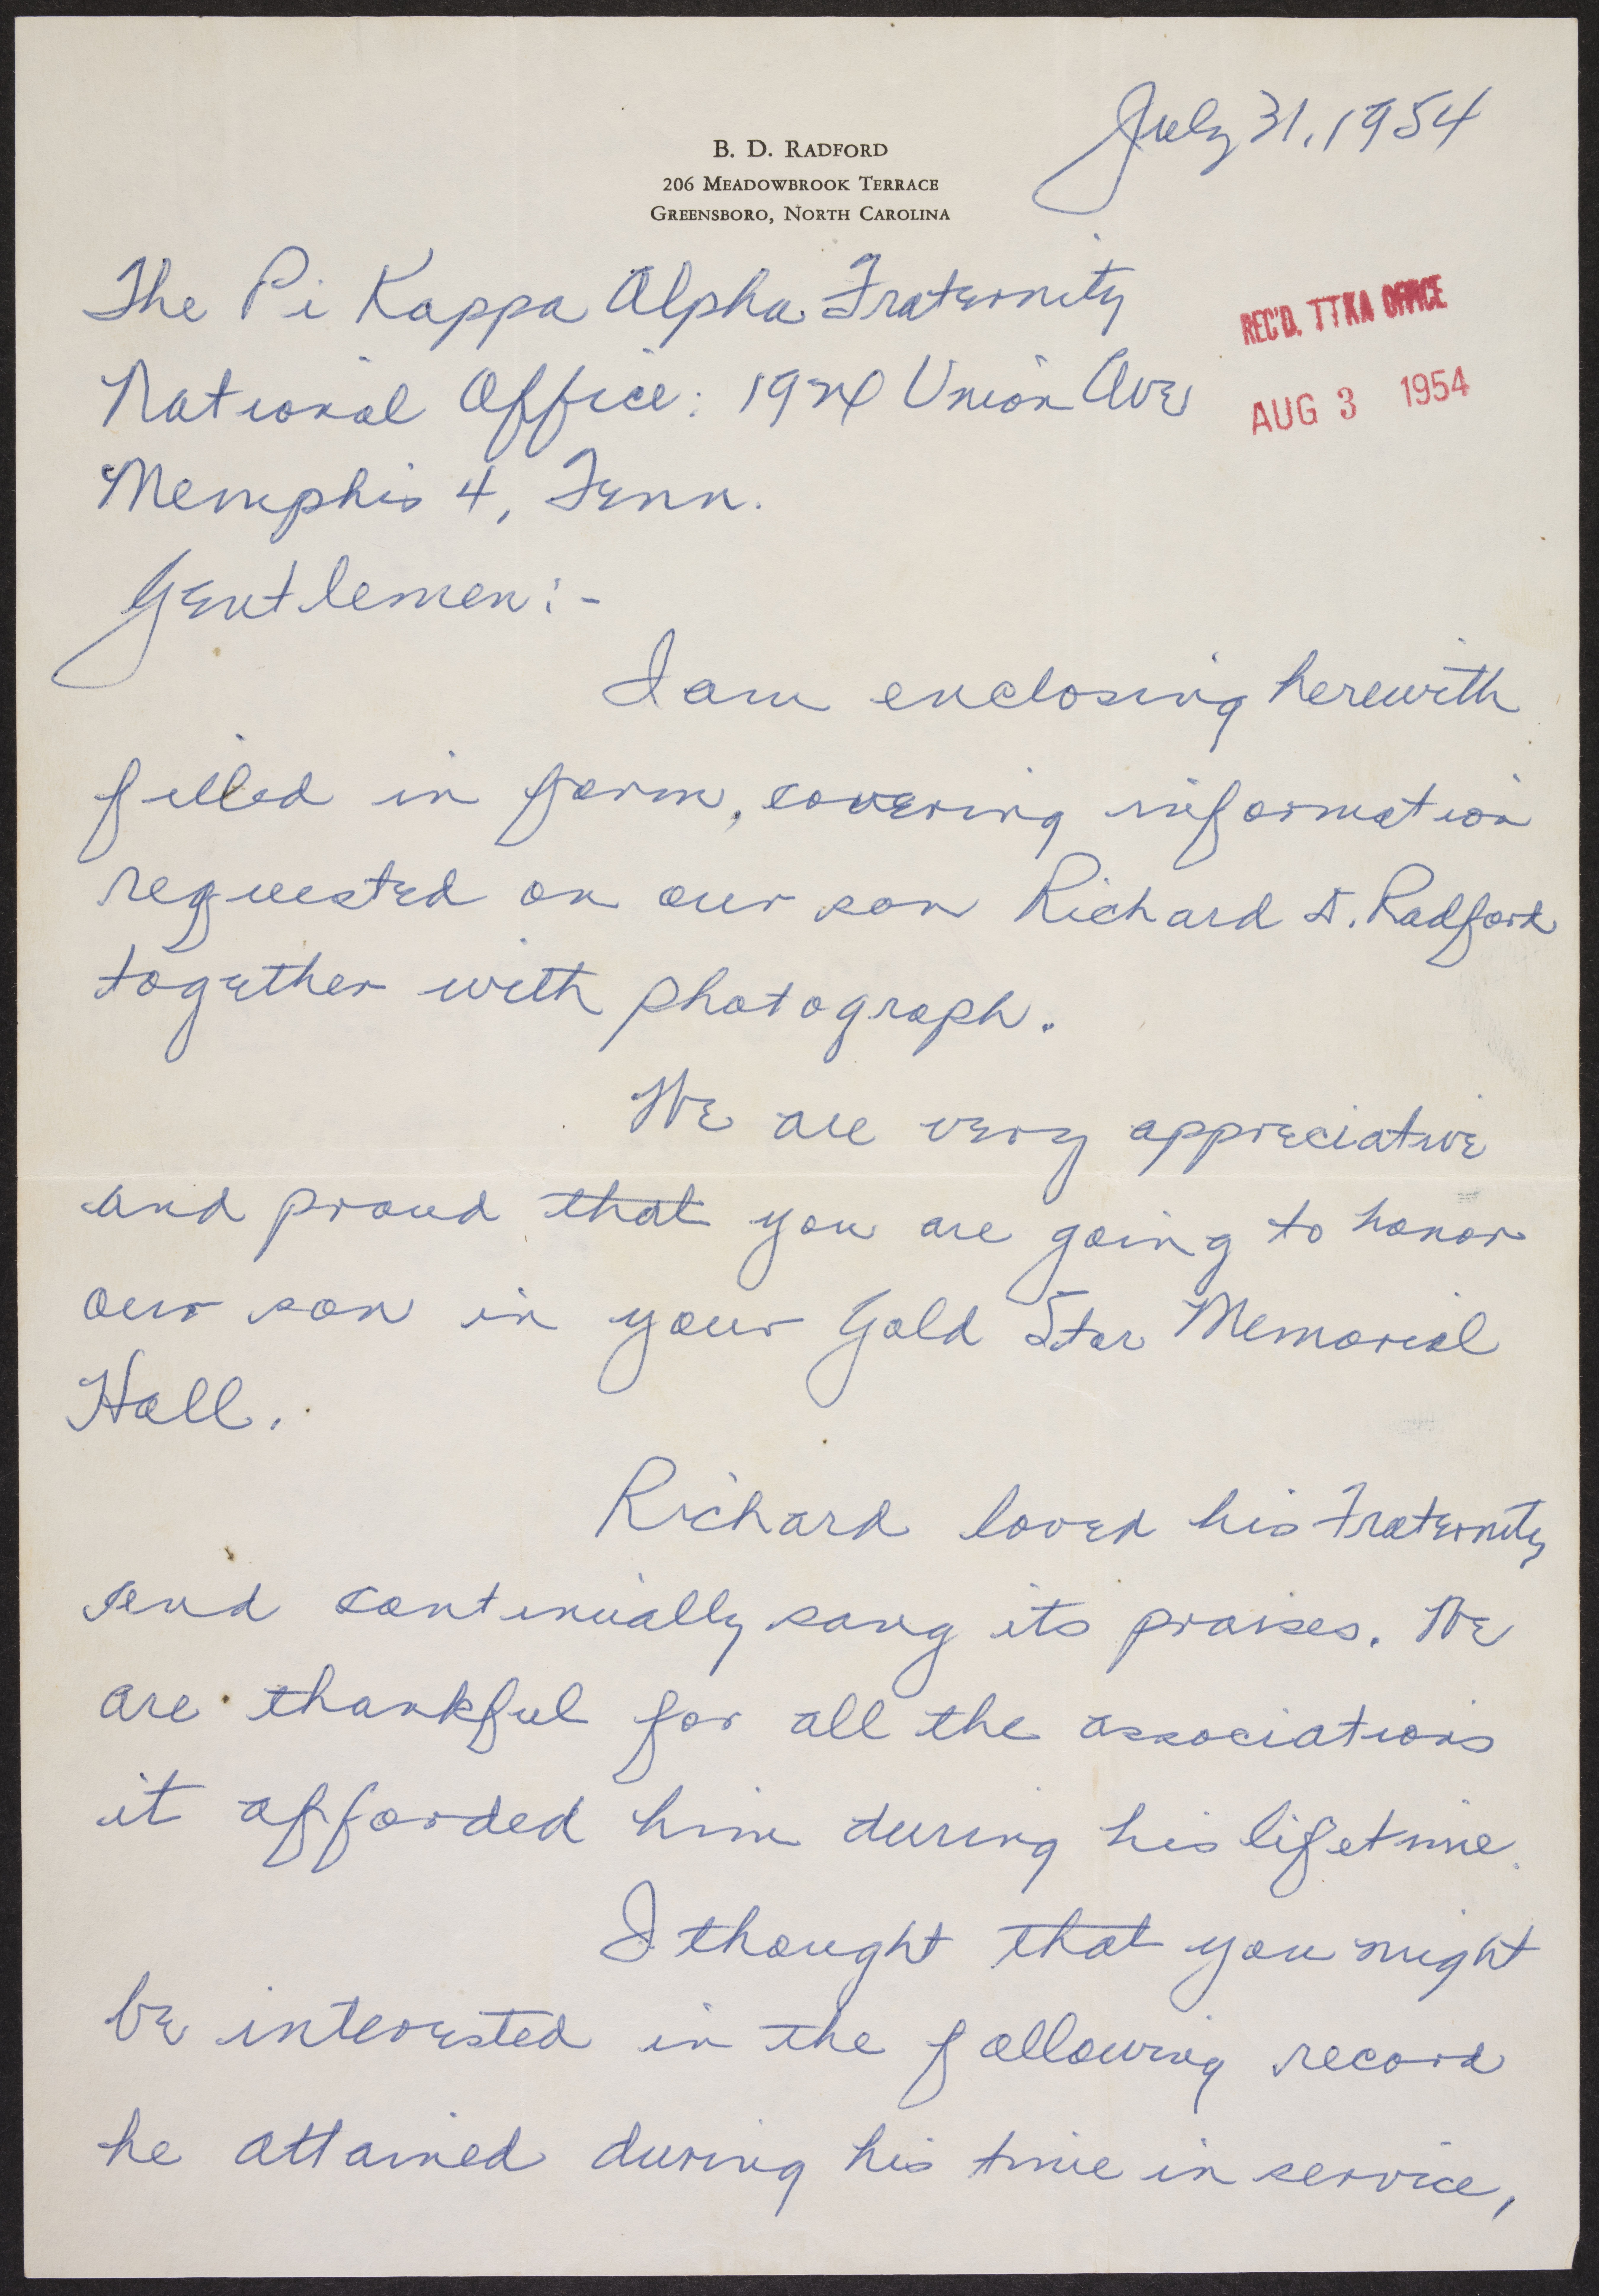 July 31, 1954
B. D. RADFORD
206 MEADOWBROOK TERRACE
GREENSBORO, NORTH CAROLINA
The Pi Kappa Alpha Fraternity
REC'D. TTKA OFFICE
National Office: Union Ave
AUG 3 1954
Memphis 4, Tenn.
Gentlemen:-
I am enclosing herewith
filled in form, covering information
requested on our son Richard Radford
together with photograph.
We are very appreciative
and proud that you are going to honor
our son in your Gold Star Memorial
Hall.
Richard loved his Fraternity
and continually sang its praises. We
are thankful for all the associations
it afforded him during his lifetime.
I thought that you might
be interested in the following record
he attained during his time in service,